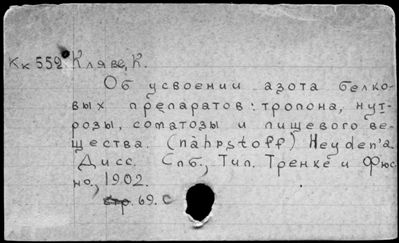 Кк 552. Клаве, К.
Об усвоении азота белко-
вых препаратов: тропона, нут-
розы, соматозы и пищевого ве-
щества. (nährstoff) Heyden'a.
Дисс. Спб., Тип. Тренке и Фюс-
но, 1902.
стр. 69. С